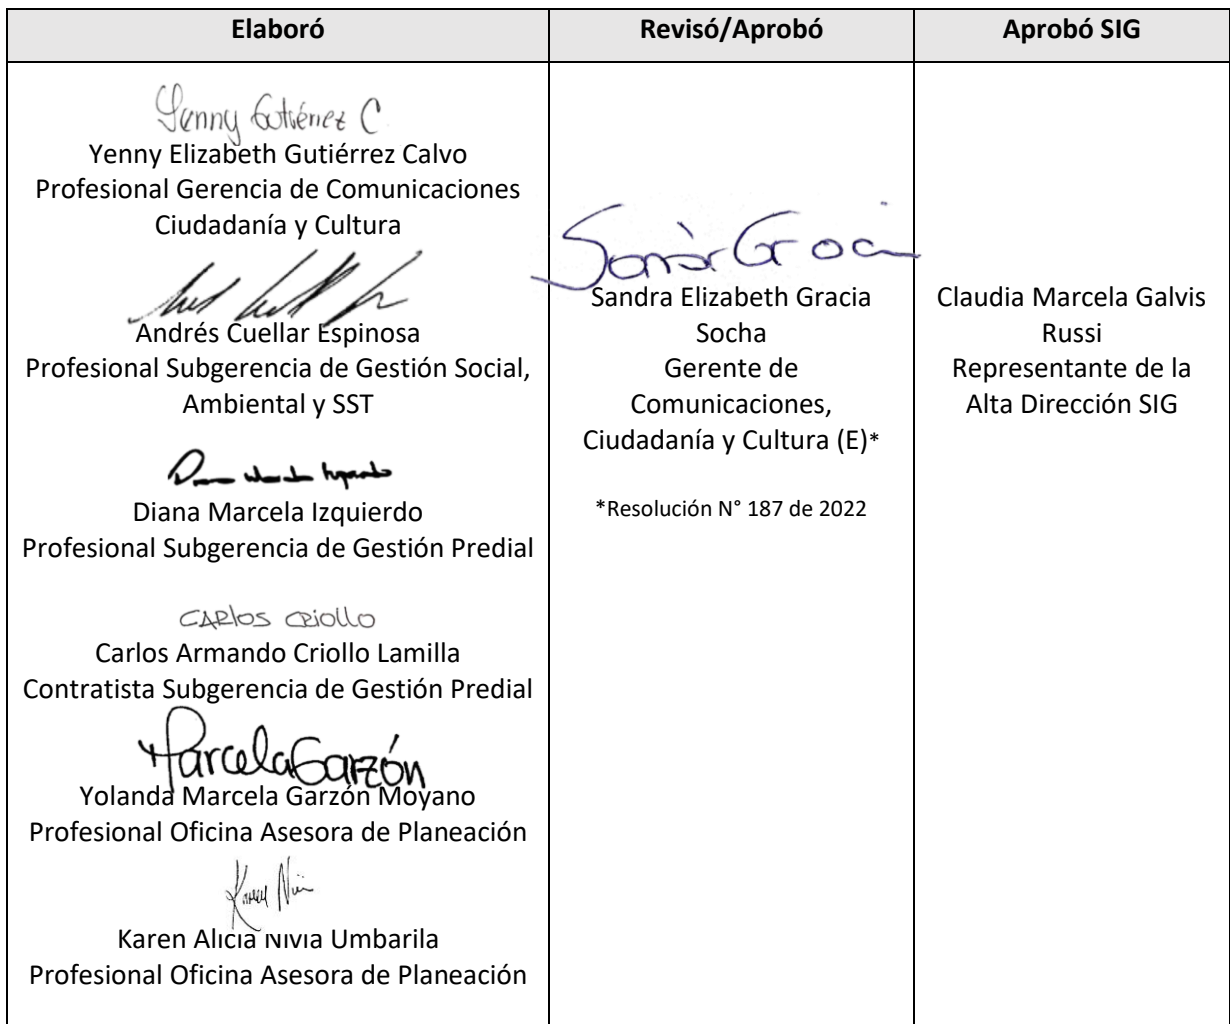 Elaboró
Revisó/Aprobó
Aprobó SIG
Yenny Gutiérrez C
Yenny Elizabeth Gutiérrez Calvo
Profesional Gerencia de Comunicaciones
Ciudadanía y Cultura
Andrés Cuellar Espinosa
Profesional Subgerencia de Gestión Social,
Ambiental y SST
Diana Marcela Izquierdo
Profesional Subgerencia de Gestión Predial
CARlos CRiollo
Carlos Armando Criollo Lamilla
Contratista Subgerencia de Gestión Predial
Marcela Garzón
Yolanda Marcela Garzón Moyano
Profesional Oficina Asesora de Planeación
Karen
Karen Alicia Nivia Umbarila
Profesional Oficina Asesora de Planeación
Sandra Elizabeth Gracia
Socha
Gerente de
Comunicaciones,
Ciudadanía y Cultura (E)*
*Resolución N° 187 de 2022
Claudia Marcela Galvis
Russi
Representante de la
Alta Dirección SIG